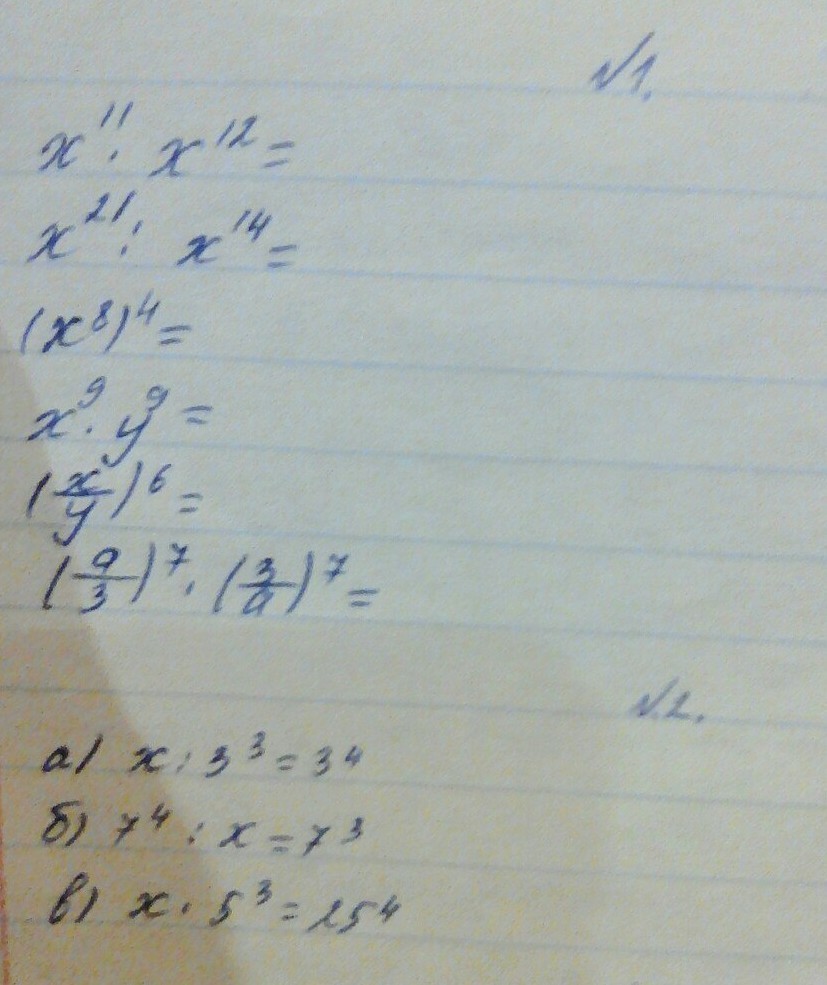 №1.
x¹¹ · x¹² =
x²¹ : x¹⁴ =
(x⁸)⁴ =
x⁹ · y⁹ =
(x/y)⁶ =
(a/3)⁷ · (3/a)⁷ =
№2.
а) x : 3³ = 3⁴
б) 7⁴ : x = 7³
в) x · 5³ = 25⁴